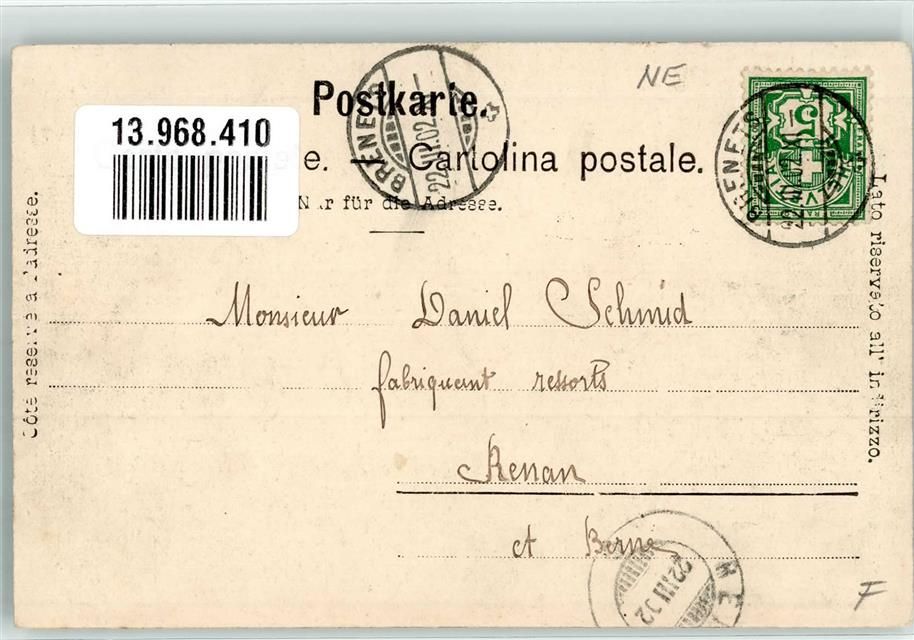 NE
Postkarte.
13.968.410
e. Cartolina postale.
Nur für die Adresse.
BRENETS
22.III.02
BRENETS
22.III.02
HELVETIA
5
Côté réservé à l'adresse.
Lato riservato all' indirizzo.
Monsieur Daniel Schmid
fabriquant ressorts
Renan
ct Berne
22.III.02
F